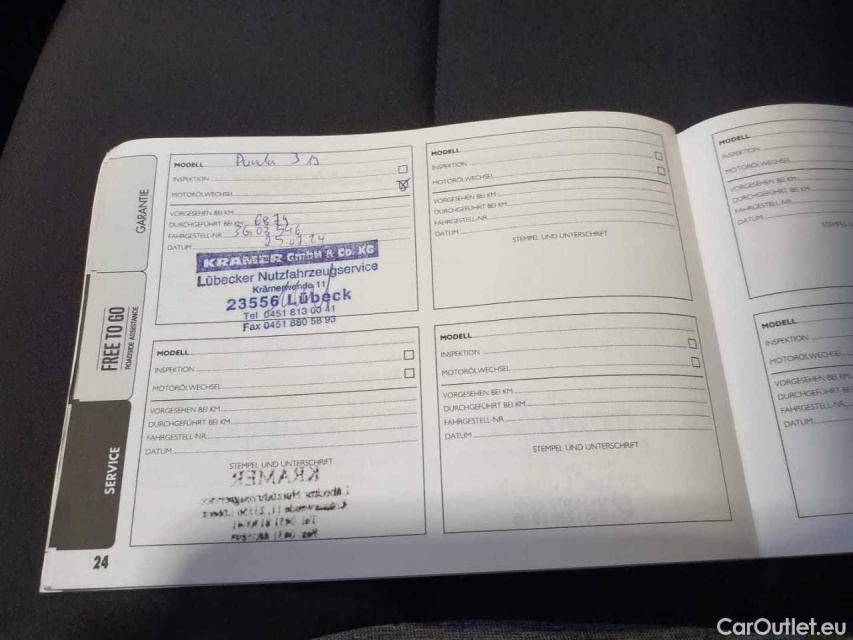 GARANTIE
FREE TO GO
ROADSIDE ASSISTANCE
SERVICE
24
MODELL
INSPEKTION
MOTORÖLWECHSEL
VORGESEHEN BEI KM
DURCHGEFÜHRT BEI KM
FAHRGESTELL-NR.
DATUM
KRAMER GmbH & Co. KG
Lübecker Nutzfahrzeugservice
Krämerwende 11
23556 Lübeck
Tel 0451 613 00 41
Fax 0451 880 58 93
MODELL
INSPEKTION
MOTORÖLWECHSEL
VORGESEHEN BEI KM
DURCHGEFÜHRT BEI KM
FAHRGESTELL-NR.
DATUM
STEMPEL UND UNTERSCHRIFT
KRAMER
MODELL
INSPEKTION
MOTORÖLWECHSEL
VORGESEHEN BEI KM
DURCHGEFÜHRT BEI KM
FAHRGESTELL-NR.
DATUM
STEMPEL UND UNTERSCHRIFT
MODELL
INSPEKTION
MOTORÖLWECHSEL
VORGESEHEN BEI KM
DURCHGEFÜHRT BEI KM
FAHRGESTELL-NR.
DATUM
STEMPEL UND UNTERSCHRIFT
MODELL
INSPEKTION
MOTORÖLWECHSEL
VORGESEHEN BEI KM
DURCHGEFÜHRT BEI KM
FAHRGESTELL-NR.
DATUM
MODELL
INSPEKTION
MOTORÖLWECHSEL
VORGESEHEN BEI KM
DURCHGEFÜHRT BEI KM
FAHRGESTELL-NR.
DATUM
CarOutlet.eu